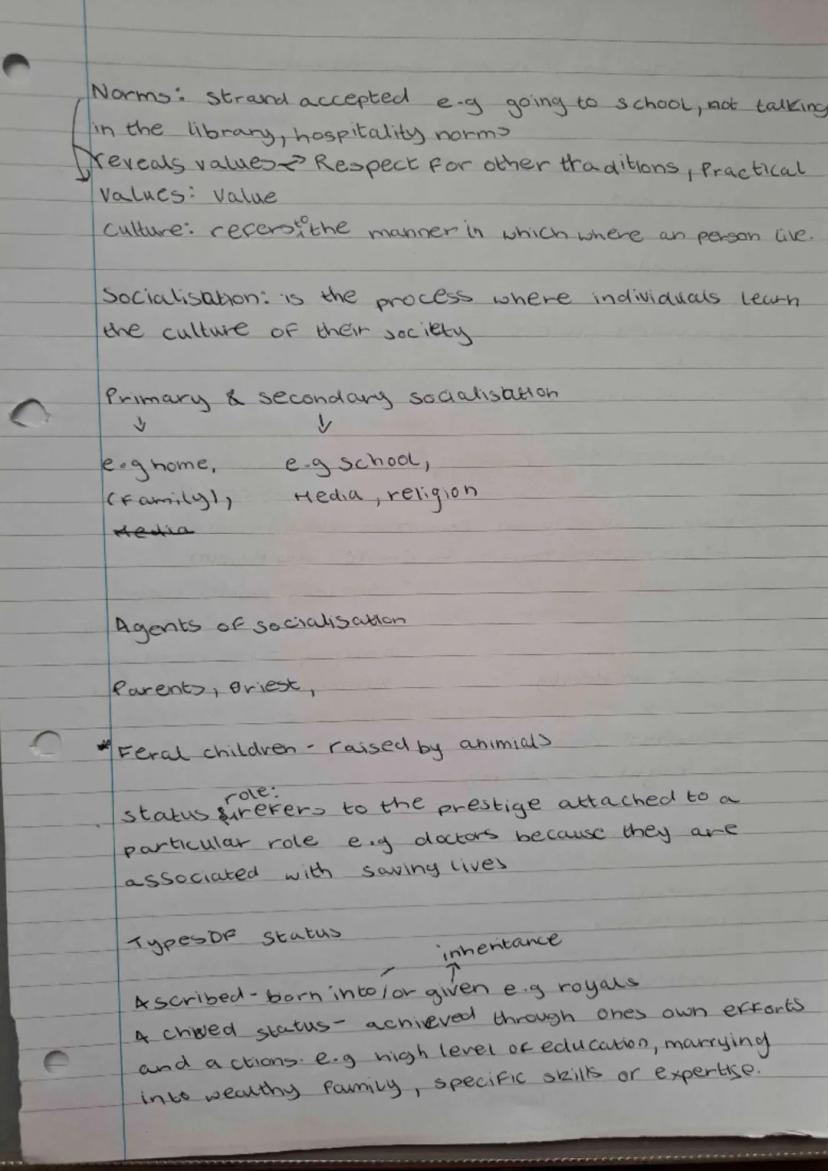 Norms: strand accepted e.g going to school, not talking
in the library, hospitality norms
reveals values → Respect for other traditions, Practical
values: value
culture: refers to the manner in which where an person live.
Socialisation: is the process where individuals learn
the culture of their society
Primary & secondary socialisation
↓ ↓
e.g home, e.g school,
(Family), Media, religion
Media
Agents of socialisation
Parents, Priest,
*Feral children - raised by animials
role:
status & refers to the prestige attached to a
particular role e.g doctors because they are
associated with saving lives
Types OF status
inheritance
↑
Ascribed - born into/or given e.g royals
Achived status - achieved through ones own efforts
and actions. e.g high level of education, marrying
into wealthy family, specific skills or expertise.